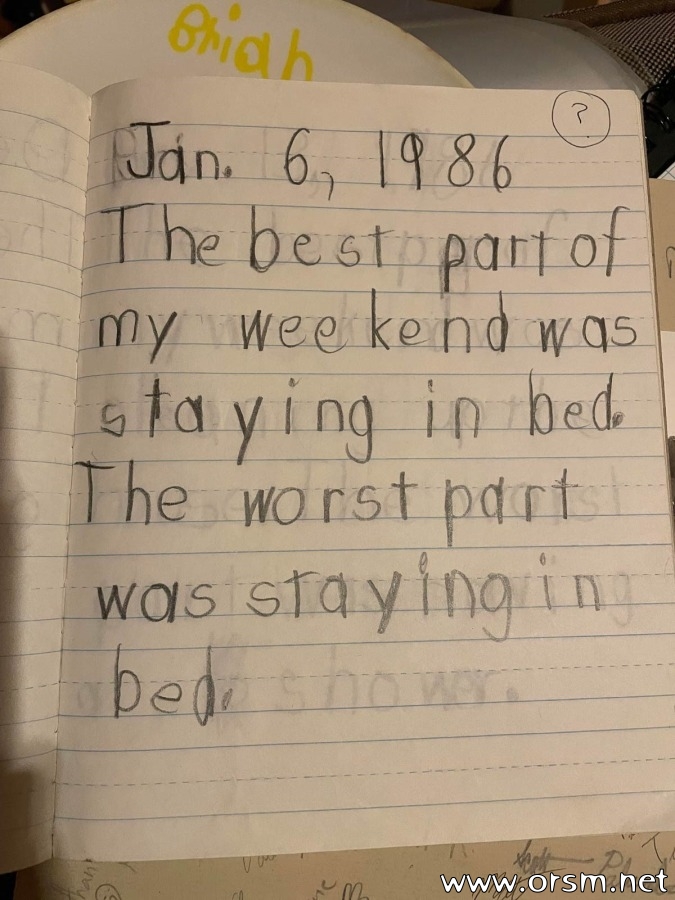 Brian
?
Jan. 6, 1986
The best part of
my weekend was
staying in bed.
The worst part
was staying in
bed.
showr.
www.orsm.net